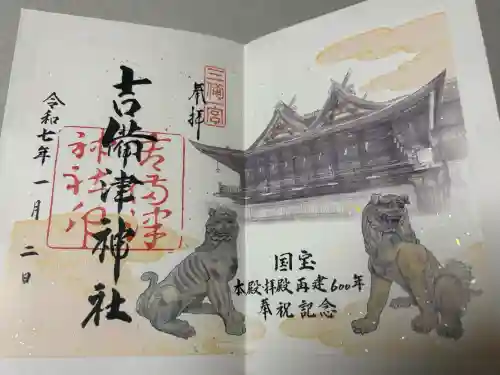 三備一宮
奉拝
吉備津神社
令和七年一月二日
国宝
本殿拝殿再建600年
奉祝記念